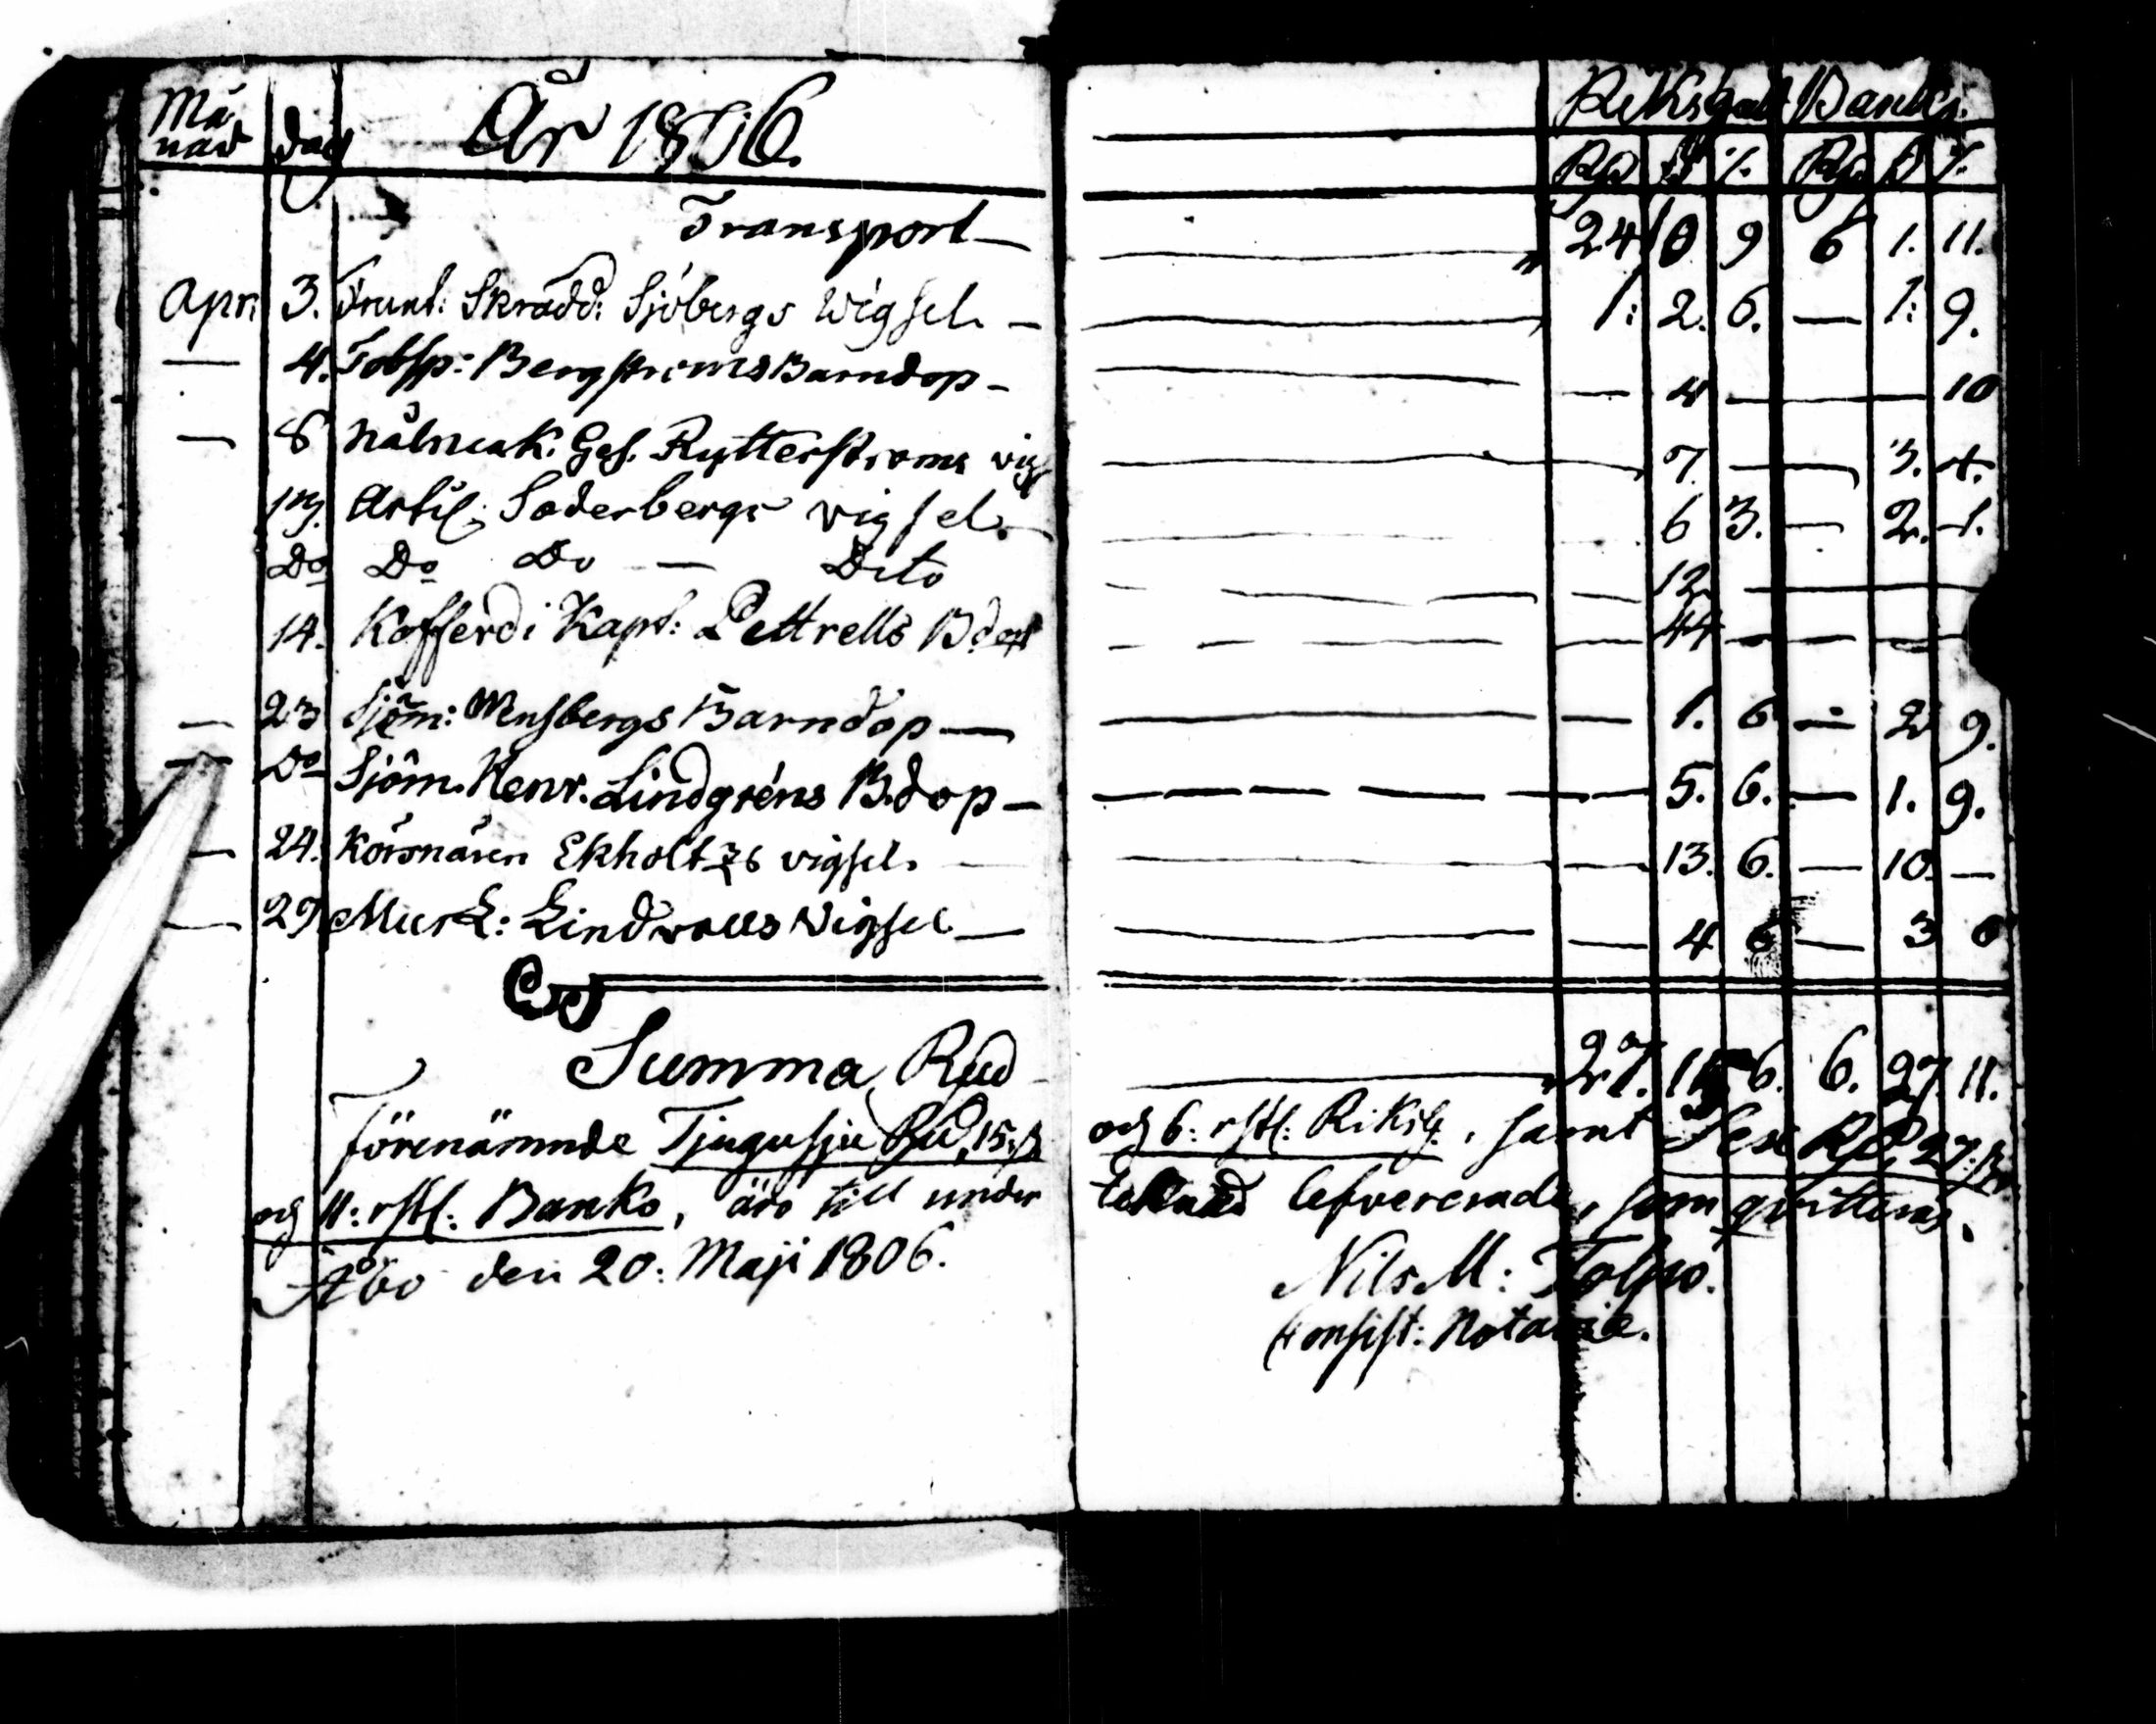 Månad dag År 1806. Riksgäld Banko.
Rd ß r. Rd ß r.
Transport — 24 10 9 6 1. 11.
Apr. 3. Frunt: Skrädd: Sjöbergs Wigsel. — 1: 2. 6. — 1: 9.
— 4. Tobsp: Bergströms Barndop — — 4 — — — 10
— 8 Nålmak. Ges. Rytterströms vigs 7. — 3. 4.
13. Artil: Söderbergs vigsel. 6 3. — 2. 1.
Do Do Do — Dito — 12 —
14. Kofferdi Kapt: Pettrells B.dop — 44 — — —
— 23 Sjöm: Wensbergs Barndop — — 1. 6 — 2 9.
— Do Sjöm. Henr. Lindgréns B.dop — — 5. 6. — 1. 9.
— 24. Körsnären Ekholts vigsel. — 13. 6. — 10. —
— 29 Murl: Lindwalls Vigsel — — 4 6 — 3 6
Summa Rd — 27. 15 6. 6. 27. 11.
förenämnde Tjugusju Rd, 15. ß och 6. rst: Riksg., samt Sex Rd, 27: ß
och 11: rst: Banko, äro till under tecknad lefvererade, som qvitteras.
Åbo den 20: Maji 1806. Nils M: Tolpo.
Consist: Notarie.